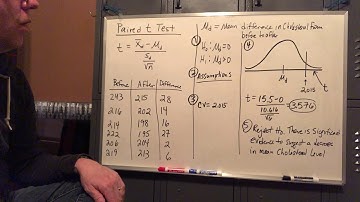 Paired t Test
t = X̄d - Md
Sd
√n
Before After Difference
243 215 28
216 202 14
214 198 16
222 195 27
206 204 2
219 213 6
Md = Mean difference in Cholesterol from
before to after
①
H₀: Md = 0
H₁: Md > 0
② Assumptions
③ CV = 2.015
④
Md
2.015
t
t = 15.5 - 0
10.616
√6
= 3.576
⑤ Reject H₀. There is Significant
evidence to suggest a decrease
in mean Cholesterol Level